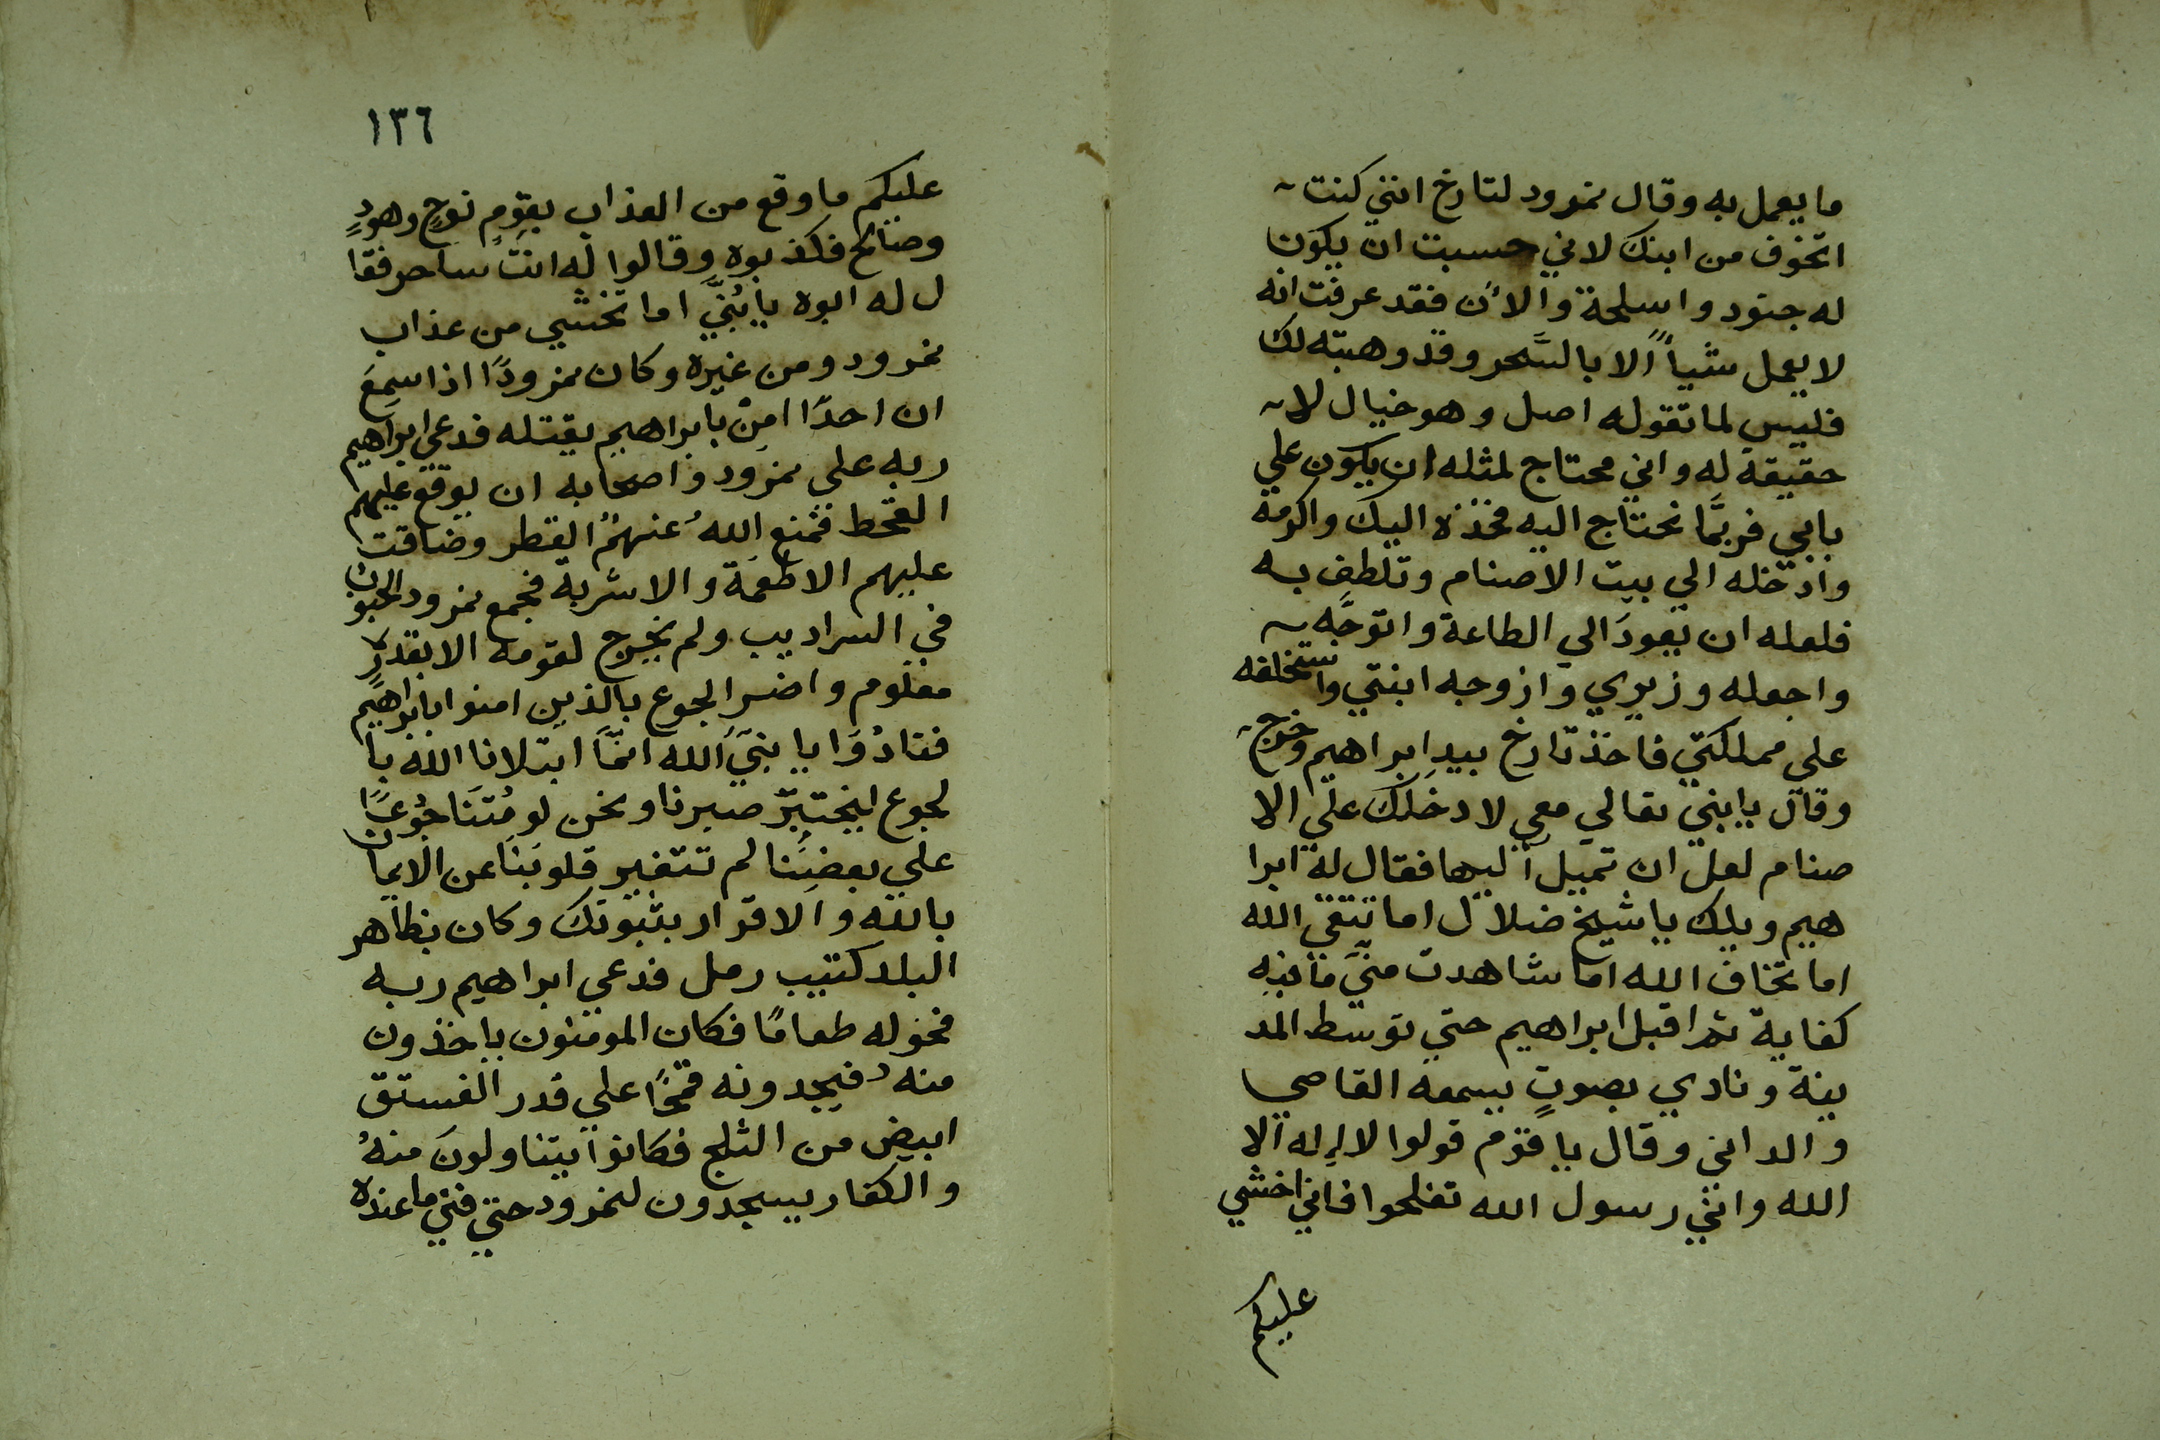 ما يعمل به وقال نمرود لتارخ انني كنت
اتخوف من ابنك لاني حسبت ان يكون
له جنود واسلحة والأن فقد عرفت انه
لا يعمل شياً الا بالسَّحر وقد وهبته لك
فليس لما تقوله اصل وهو خيال لا
حقيقة له واني محتاج لمثله ان يكون علي
بابي فربَّما نحتاج اليه فخذه اليك واكرمه
وادخله الي بيت الاصنام وتلطف به
فلعله ان يعودَ الي الطاعة واتوجَّه
واجعله وزيري وازوجه ابنتي واستخلفه
علي مملكتي فاخذ تارخ بيدِ ابراهيم وخرج
وقال يا بني تعالي معي لادخلك علي الا
صنام لعل ان تميل اليها فقال له ابرا
هيم ويلك يا شيخ ضلال اما تتقي الله
اما تخاف الله اما شاهدت منّي ما فيه
كفاية ثم اقبل ابراهيم حتي توسط المد
ينة ونادي بصوتٍ يسمعه القاصي
والداني وقال يا قوم قولوا لا اله الا
الله واني رسول الله تفلحوا فاني اخشي
عليكم
١٣٦
عليكم ما وقع من العذاب بقومِ نوحٍ وهودٍ
وصالح فكذبوه وقالوا له انتَ ساحر فقا
ل له ابوه يا بُنيَّ اما تخشي من عذاب
نمرود ومن غيره وكان نمرودًا اذا سمعَ
ان احدًا امنْ بابراهيم يقتله فدعي ابراهيم
ربه علي نمرود واصحابه ان يوقع عليهم
القحط فمنع اللهُ عنهمُ القطر وضاقت
عليهم الاطعمَة والاشربة فجمع نمرود الحبوب
في السراديب ولم يخرج لقومه الا بقدرٍ
معلوم واضر الجوع بالذين امنوا بابراهيم
فنادُوَا يا نبيَّ الله انمَّا ابتلانا الله با
لجوع ليختبرَ صبرنا ونحن لو مُتنَا جُوعًا
علي بعضِنا لم تتغير قلوبنَا عن الايمان
بالله والاقرار بنبوتك وكان بظاهر
البلد كتيب رمل فدعي ابراهيم ربه
فحوله طعامًا فكان المومنون ياخذون
منه فيجدونه قمحًا علي قدر الفستق
ابيض من الثلج فكانوا يتناولونَ منهُ
والكفار يسجدون لنمرود حتي فني ما عنده